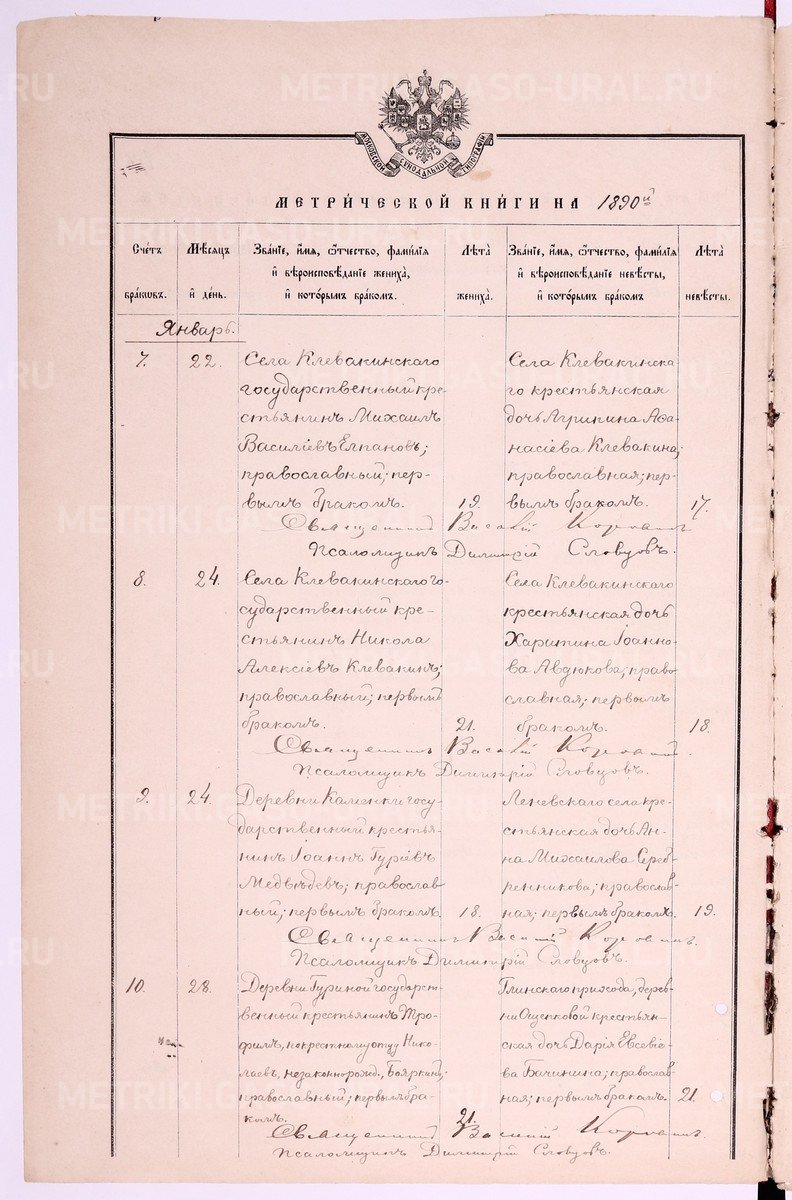 МОСКОВСКОЙ СѴНОДАЛЬНОЙ ТИПОГРАФІИ
МЕТРИ́ЧЕСКОЙ КНИ́ГИ НА 1890й
Сче́тъ бра́кѡвъ.
Мѣ́сѧцъ и҆ де́нь.
Зва́нїе, и҆́мѧ, ѻ҆́тчество, фамн́лїѧ
и҆ вѣроисповѣ́данїе жениха̀,
и҆ кото́рымъ бра́комъ.
Лѣ̑та жениха̀.
Зва́нїе, и҆́мѧ, ѻ҆́тчество, фами́лїѧ
и҆ вѣроисповѣ́данїе невѣ́сты,
и҆ кото́рымъ бра́комъ
Лѣ̑та невѣ́сты.
Январь.
7.
22.
Села Клевакинскаго
государственный кре-
стьянинъ Михаилъ
Василіевъ Елпановъ;
православный; пер-
вымъ бракомъ.
19.
Села Клевакинска
го крестьянская
дочь Агрипина Аѳа
насіева Клевакина;
православная; пер-
вымъ бракомъ.
17.
Священникъ Василій
Псаломщикъ Димитрій Словцовъ.
8.
24.
Села Клевакинскаго го-
сударственный кре-
стьянинъ Никола
Алексіевъ Клевакинъ;
православный; первымъ
бракомъ.
21.
Села Клевакинскаго
крестьянская дочь
Харитина Іоанно-
ва Авдюкова; право-
славная; первымъ
бракомъ.
18.
Священникъ Василій
Псаломщикъ Димитрій Словцовъ.
9.
24.
Деревни Каменки госу-
дарственный крестья-
нинъ Іоаннъ Гуріевъ
Медвѣдевъ; православ
ный; первымъ бракомъ.
18.
Леневскаго села кре-
стьянская дочь Ан-
на Михаилова Сереб-
ренникова; православ-
ная; первымъ бракомъ.
19.
Священникъ Василій
Псаломщикъ Димитрій Словцовъ.
10.
28.
Деревни Гуриной государст-
венный крестьянинъ Тро-
фимъ, по крестному отцу Нико-
лаевъ, незаконнорожд., Бояркин;
православный; первымъ бра-
комъ.
21.
Глинскаго прихода, дерев-
ни Ощепковой крестьян-
ская дочь Дарія Евсевіе-
ва Бачинина; православ-
ная; первымъ бракомъ.
21.
Священникъ Василій
Псаломщикъ Димитрій Словцовъ.
METRIKI.GASO-URAL.RU